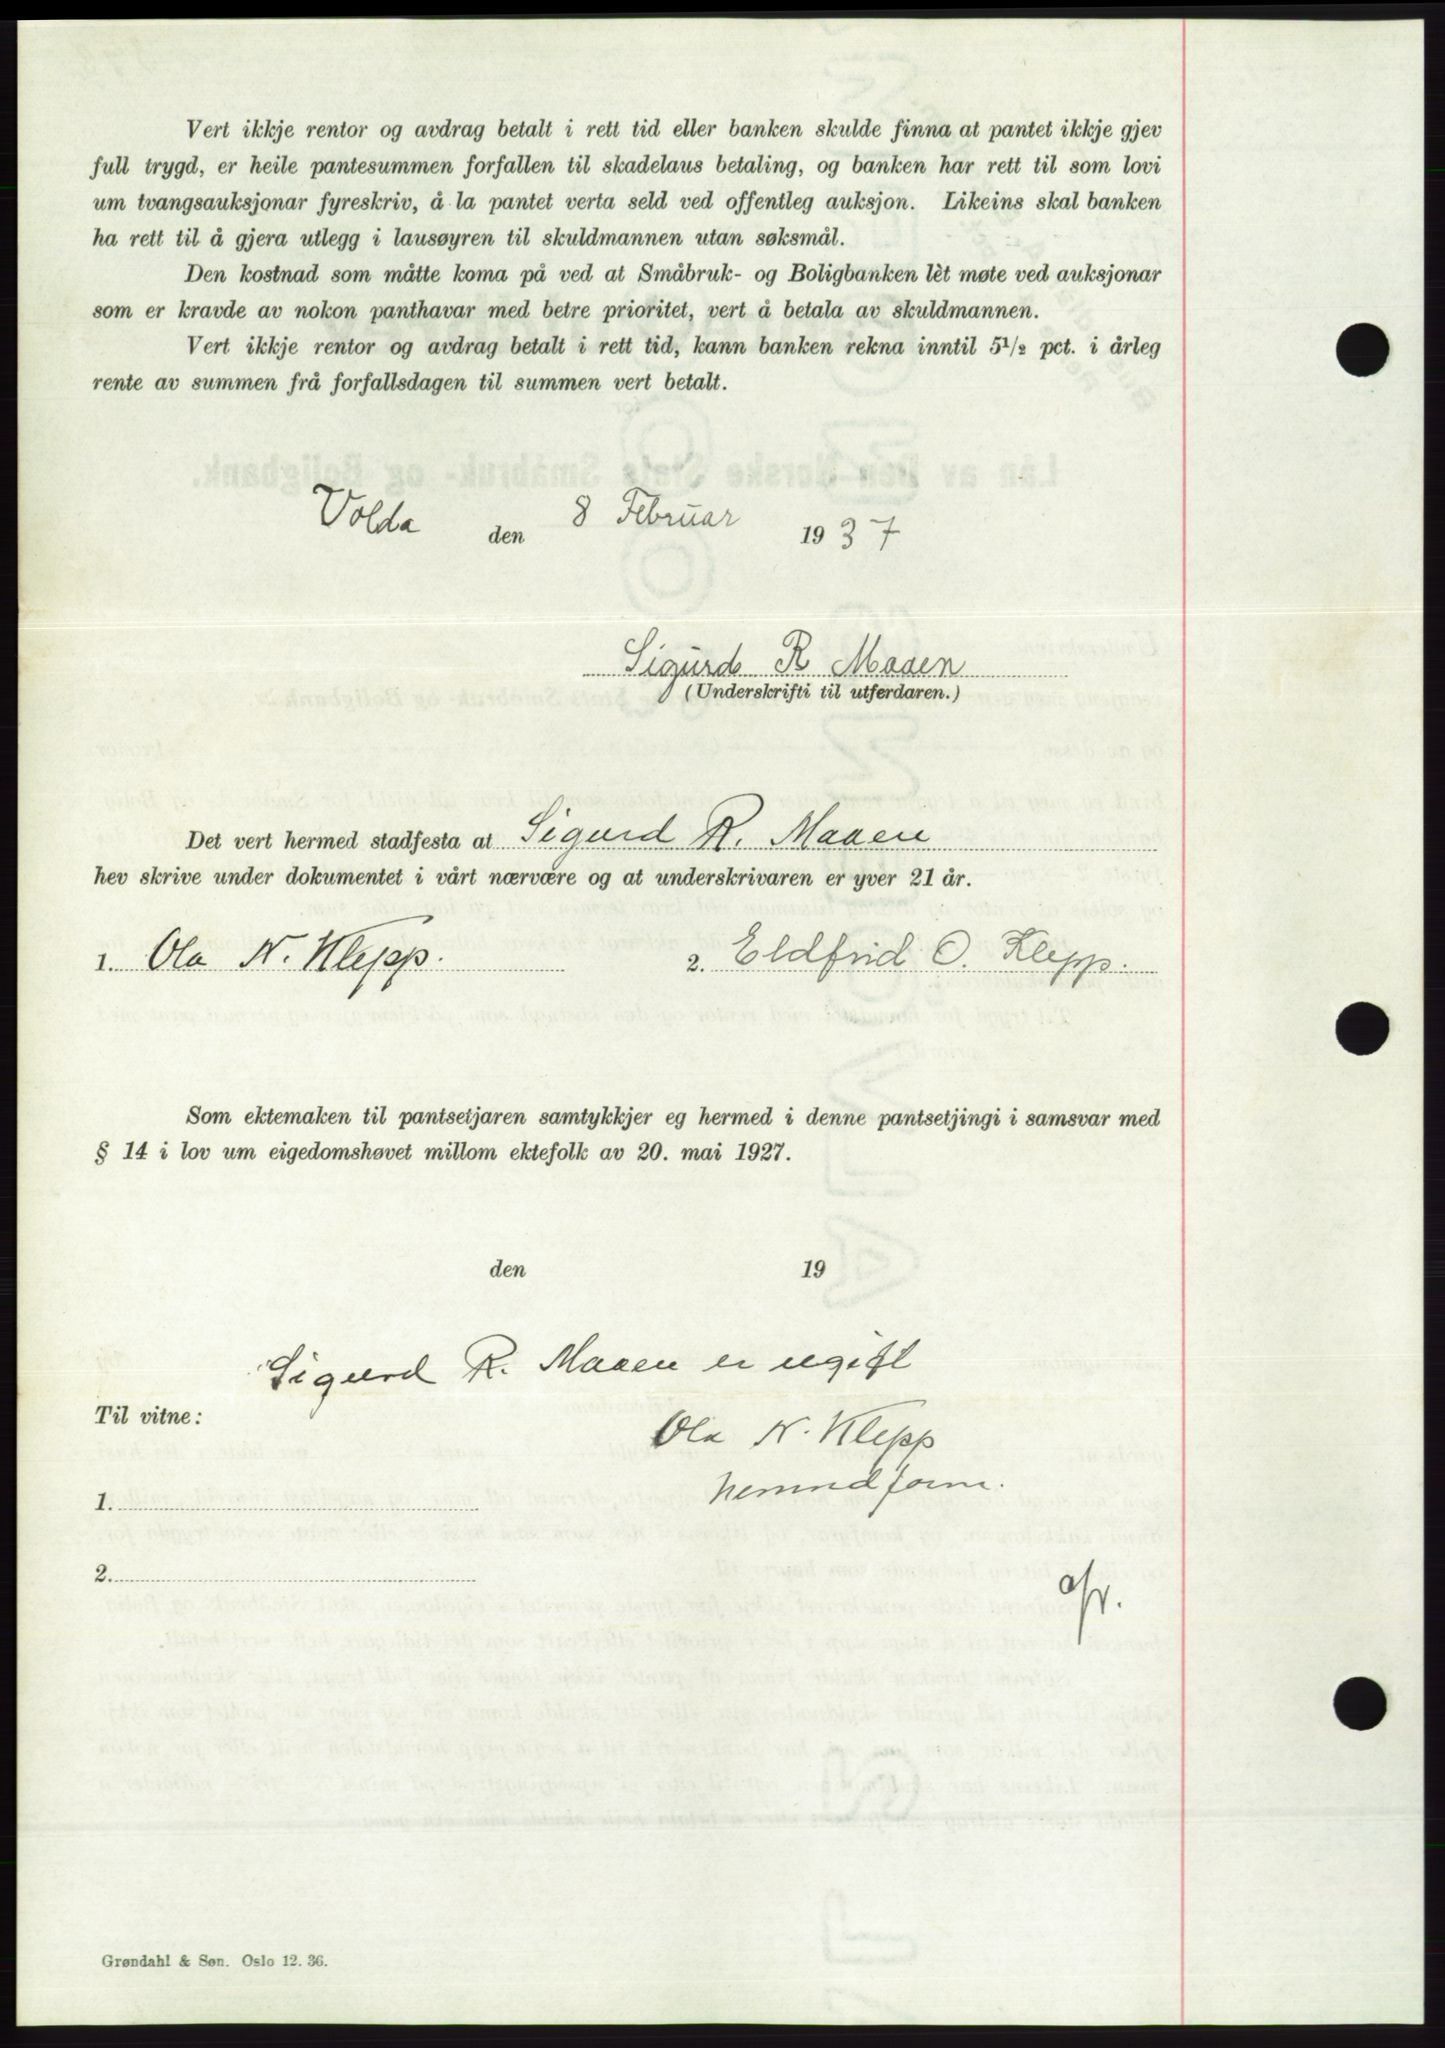 Vert ikkje rentor og avdrag betalt i rett tid eller banken skulde finna at pantet ikkje gjev
full trygd, er heile pantesummen forfallen til skadelaus betaling, og banken har rett til som lovi
um tvangsauksjonar fyreskriv, å la pantet verta seld ved offentleg auksjon. Likeins skal banken
ha rett til å gjera utlegg i lausøyren til skuldmannen utan søksmål.
Den kostnad som måtte koma på ved at Småbruk- og Boligbanken lèt møte ved auksjonar
som er kravde av nokon panthavar med betre prioritet, vert å betala av skuldmannen.
Vert ikkje rentor og avdrag betalt i rett tid, kann banken rekna inntil 5½ pct. i årleg
rente av summen frå forfallsdagen til summen vert betalt.
Volda den 8 Februar 1937
Sigurd R Maaen
(Underskrifti til utferdaren.)
Det vert hermed stadfesta at Sigurd R. Maaen
hev skrive under dokumentet i vårt nærvære og at underskrivaren er yver 21 år.
1. Ola N. Klepp. 2. Eldfrid O. Klepp.
Som ektemaken til pantsetjaren samtykkjer eg hermed i denne pantsetjingi i samsvar med
§ 14 i lov um eigedomshøvet millom ektefolk av 20. mai 1927.
den 19
Sigurd R. Maaen er ugift
Til vitne:
Ola N. Klepp
1.
2.
Grøndahl & Søn. Oslo 12. 36.